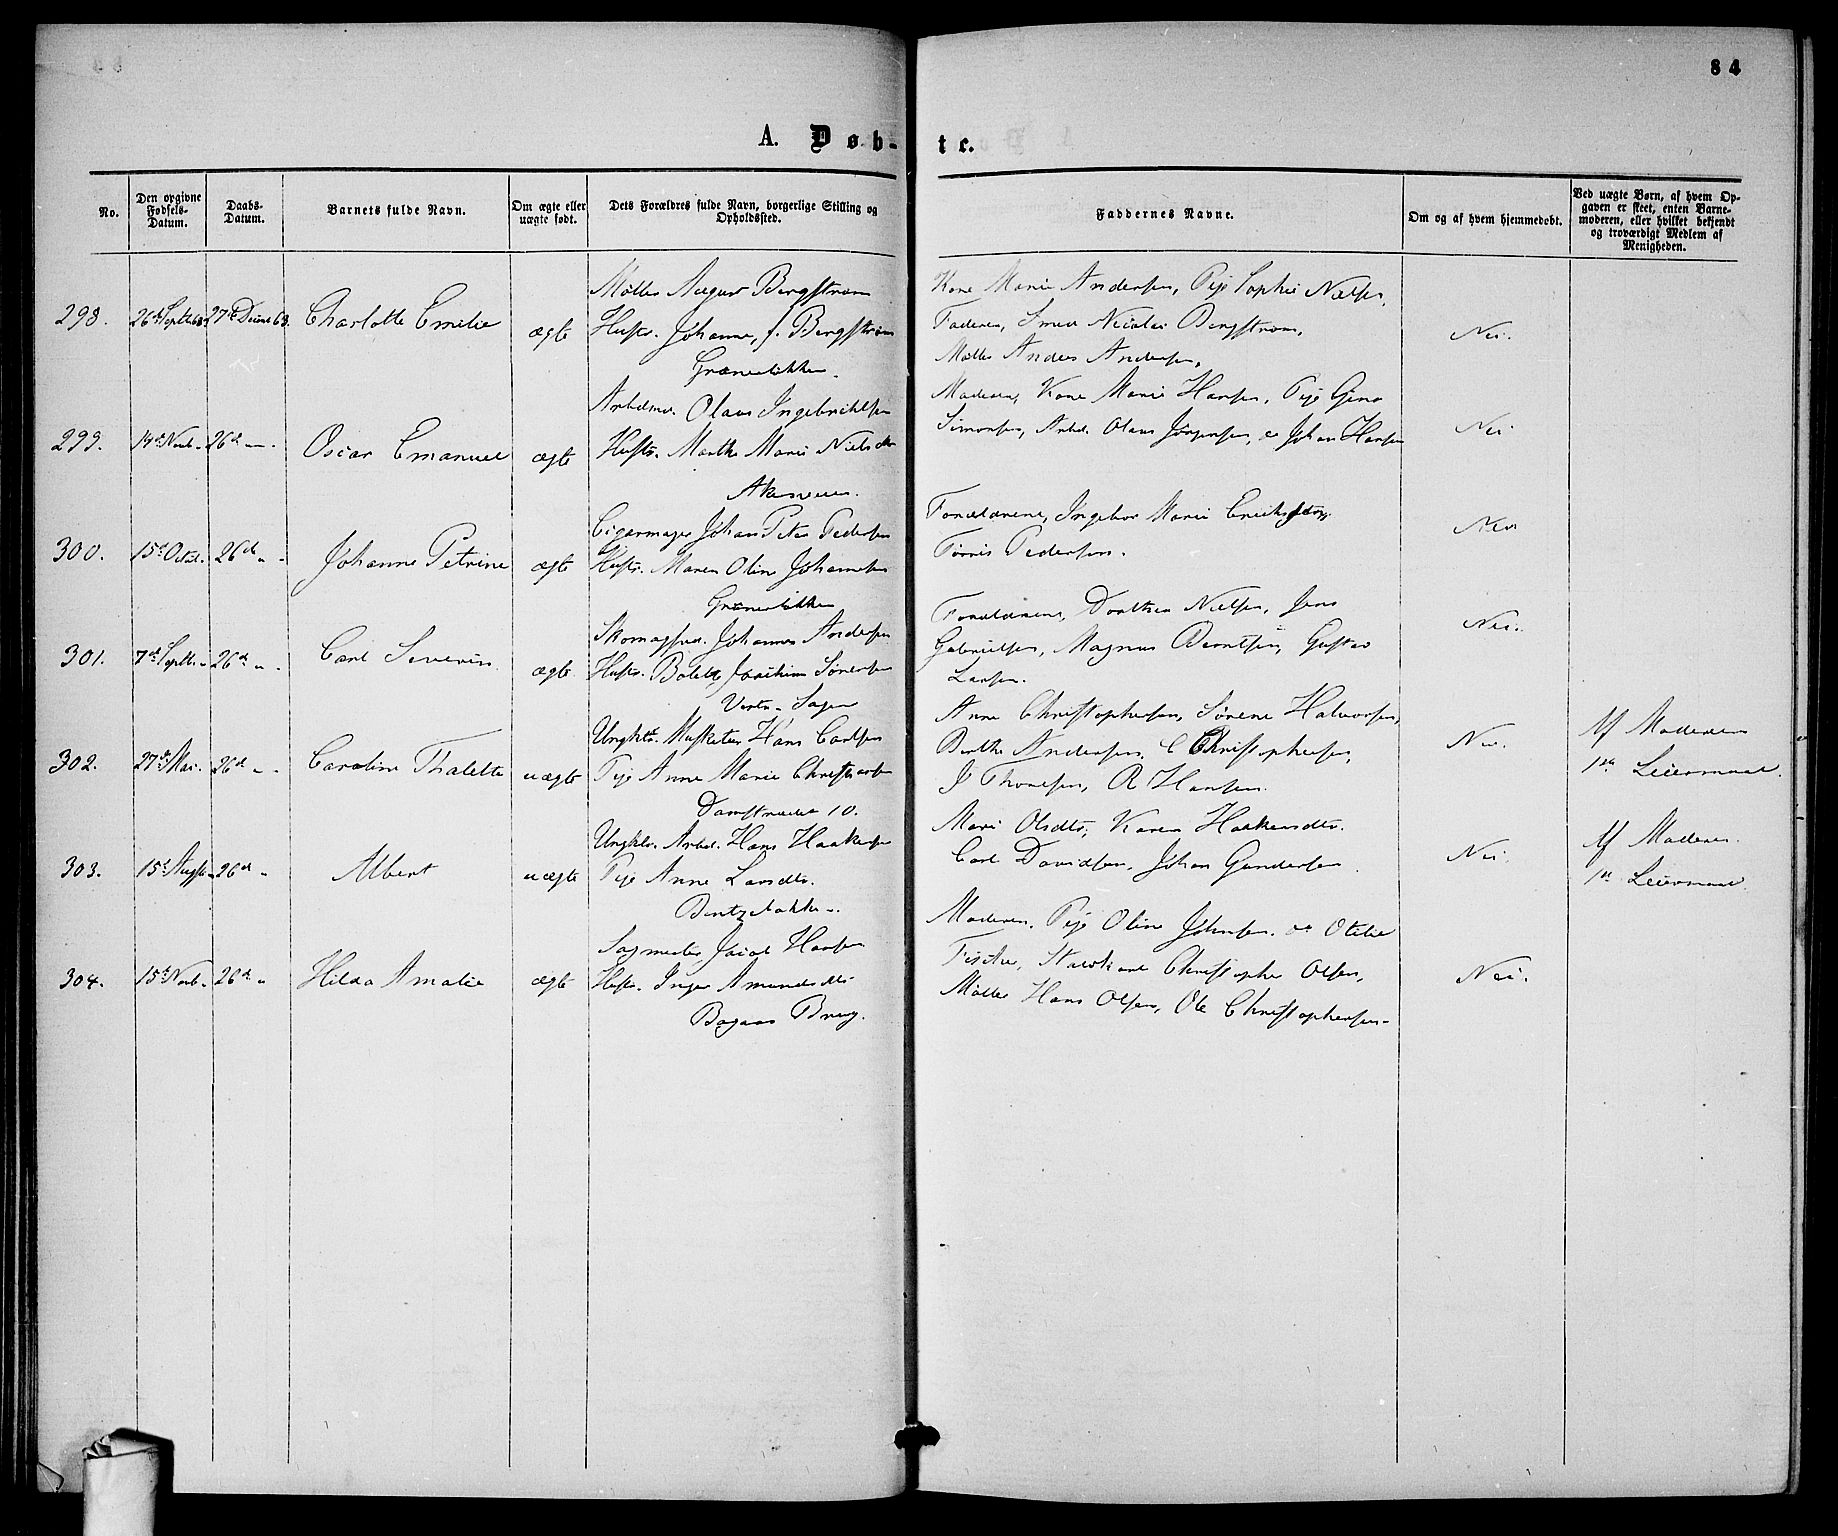 84
A. Døb-
te.
No.
Den opgivne Fødsels-Datum.
Daabs-Datum.
Barnets fulde Navn.
Om ægte eller uægte født.
Dets Forældres fulde Navn, borgerlige Stilling og Opholdssted.
Faddernes Navne.
Om og af hvem hjemmedøbt.
Ved uægte Børn, af hvem Opgaven er skeet, enten Barnemoderen, eller hvilket bekjendt og troværdigt Medlem af Menigheden.
298. 26de Septbr 27de Decbr 63. Charlotte Emilie ægte
Møller August Bergstrøm
Hustr. Johanne, f. Bergstrøm
Grønerløkken.
Kone Marie Andersen, Pige Sophie Nielsen,
Faderen, Smed Nicolai Bergstrøm,
Møller Anders Andersen,
Nei.
299. 14de Novb. 26de Oscar Emanuel ægte
Arbdmd. Olaus Ingebrigtsen
Hustr. Marthe Marie Nielsdtr
Akerselven.
Moderen, Kone Marie Hansen, Pige Gina
Simonsen, Arbd. Olaus Jørgensen, Johan Hansen
Nei
300. 15de Octob. 26de Johanne Petrine ægte
Cigarmager Johan Peter Pedersen
Hustr. Maren Oline Johannesen
Grønerløkken
Forældrene, Ingebor Marie Eriksen,
Tørris Pedersen.
Nei
301. 7de Septbr. 26de Carl Severin ægte
Skomagersvd. Johannes Andersen
Hustr. Bolette Joachime Sørensen
Forældrene, Dorthea Nielsen, Jens
Gabrielsen, Magnus Berntsen, Gustav
Larsen.
Nei.
302. 27de Mai. 26de Caroline Thalette uægte
Ungkl. Musketer Hans Carlsen
Pige Anne Marie Christians
Damstrædet 10.
Anne Christophersen, Sørene Halvorsen,
Berthe Andersen, C Christophersen,
J Thoresen, R Hansen.
Nei.
Af Moderen
1ste Leiermaal.
303. 15de August 26de Albert uægte
Ungkl. Arbd. Hans Haakensen
Pige Anne Larsdtr.
Bentzeløkken.
Mari Olsdtr, Karen Haakensdtr.
Carl Davidsen, Johan Gundersen.
Nei.
Af Moderen.
1ste Leiermaal.
304. 15de Novb. 26de Hilda Amalie ægte
Sagmester Jacob Hansen
Hustr. Inger Amundsdtr
Bagaas Brug.
Moderen, Pige Oline Johnsen. og Otilie
Fischer, Christopher Olsen,
Møller Hans Olsen, Ole Christophersen-
Nei.